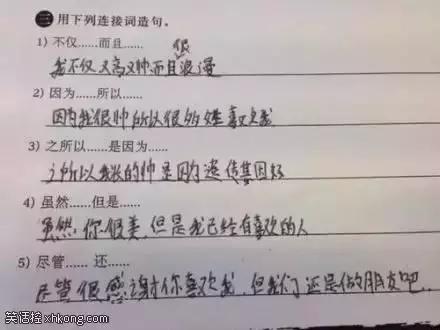 三 用下列连接词造句。
1) 不仅……而且……
我不仅又高又帅而且很浪漫
2) 因为……所以……
因为我很帅所以很多姓喜欢我
3) 之所以……是因为……
之所以我长的帅是因为遗传基因好
4) 虽然……但是……
虽然你很美,但是我已经有喜欢的人
5) 尽管…… 还……
尽管很感谢你喜欢我,但我们还是做朋友吧..
笑话栓 xhkong.com